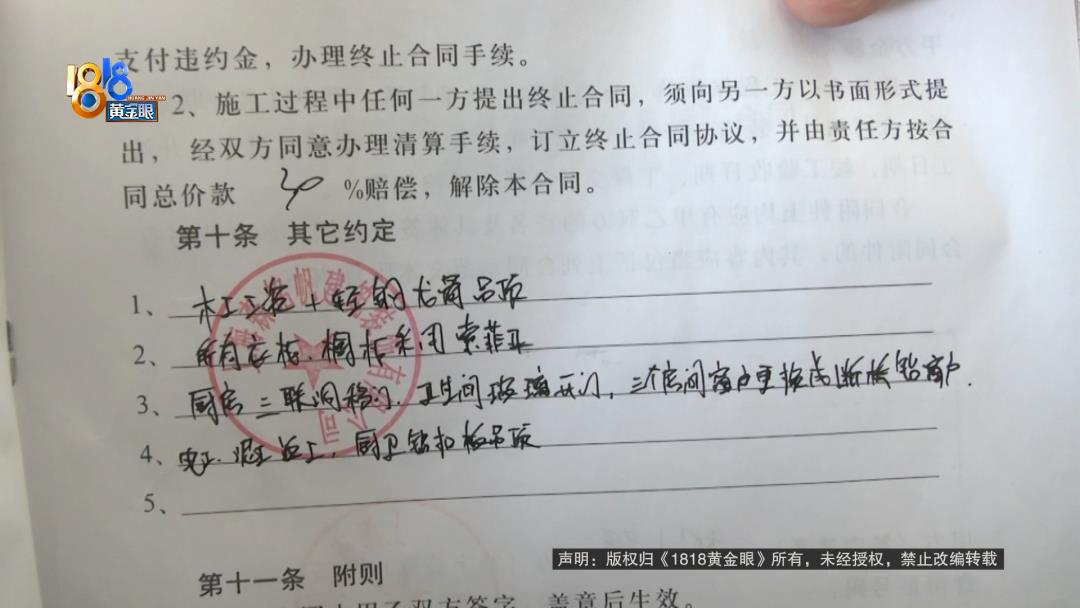 支付违约金，办理终止合同手续。
1818
HUANG JIN YAN
黄金眼
2、施工过程中任何一方提出终止合同，须向另一方以书面形式提
出，经双方同意办理清算手续，订立终止合同协议，并由责任方按合
同总价款 30 %赔偿，解除本合同。
第十条 其它约定
1、木工工资+轻钢龙骨吊顶
2、所有衣柜、橱柜采用索菲亚
3、厨房三联洞移门、卫生间玻璃开门，三个房间窗户更换成断桥铝窗户.
4、电工、泥工 工，厨卫铝扣板吊顶
5、
第十一条 附则
甲乙双方签字、盖章后生效。
声明：版权归《1818黄金眼》所有，未经授权，禁止改编转载